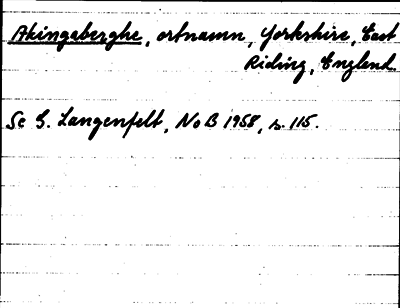 Akingaberghe, ortnamn, Yorkshire, East
Riding, England.
Se G. Langenfelt, NoB 1958, s. 115.